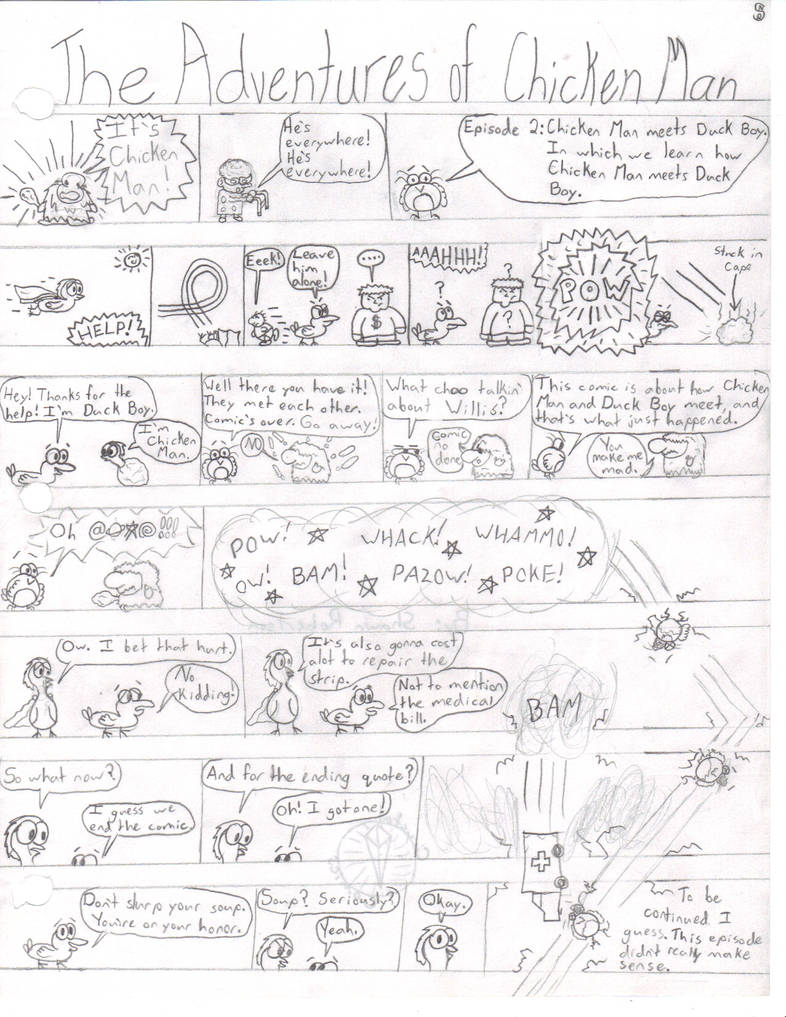 The Adventures of Chicken Man
It's
Chicken
Man!
He's
everywhere!
He's
everywhere!
Episode 2: Chicken Man meets Duck Boy.
In which we learn how
Chicken Man meets Duck
Boy.
HELP!
Eeek!
Leave
him
alone!
....
$
AAAHHH!
?
?
?
POW
Stuck in
Cape
Hey! Thanks for the
help! I'm Duck Boy.
I'm
Chicken
Man.
Well there you have it!
They met each other.
Comic's over. Go away!
NO
What choo talkin'
about Willis?
Comic
no
done
This comic is about how Chicken
Man and Duck Boy meet, and
that's what just happened.
You
make me
mad.
Oh @
POW! WHACK! WHAMMO!
OW! BAM! PAZOW! POKE!
Ow. I bet that hurt.
No
Kidding!
It's also gonna cost
alot to repair the
strip.
Not to mention
the medical
bill.
BAM
So what now?
I guess we
end the comic.
And for the ending quote?
Oh! I got one!
Don't slurp your soup.
You're on your honor.
Soup? Seriously?
Yeah.
Okay.
To be
continued I
guess. This episode
didn't really make
sense.